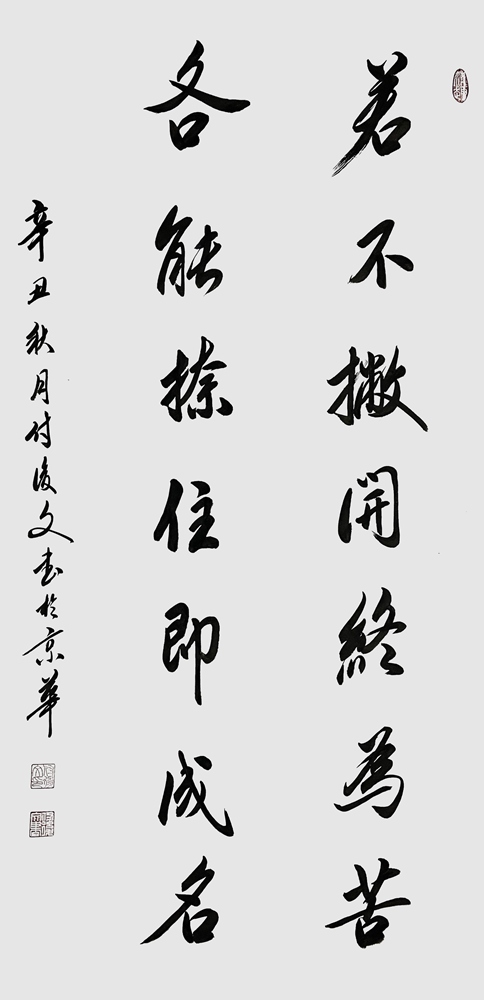 若不撇開終為苦
各能捺住即成名
辛丑秋月付俊文书於京華